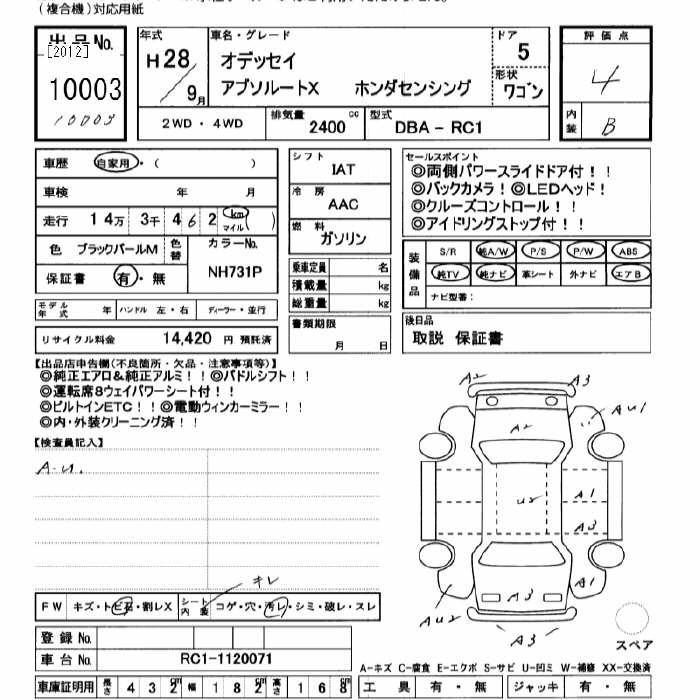 (複合機)対応用紙
出品No.
[2012]
10003
10003
年式
H28/9月
車名・グレード
オデッセイ
アブソルートX ホンダセンシング
ドア
5
形状
ワゴン
評価点
4
内装
B
2WD・4WD
排気量
2400 cc
型式
DBA-RC1
車歴 自家用・( )
車検 年 月
走行 14万 3千 4 6 2 km マイル ( )
色 ブラックパールM 色替
カラーNo.
NH731P
保証書 有・無
モデル年式 年 ハンドル 左・右 ディーラー・並行
リサイクル料金 14,420 円 預託済
シフト
IAT
冷房
AAC
燃料
ガソリン
乗車定員 名
積載量 kg
総重量 kg
書類期限
月 日
セールスポイント
◎両側パワースライドドア付!!
◎バックカメラ!◎LEDヘッド!
◎クルーズコントロール!!
◎アイドリングストップ付!!
装備品
S/R 純A/W P/S P/W ABS
純TV 純ナビ 革シート 外ナビ エアB
ナビ型番:
後日品
取説 保証書
【出品店申告欄(不良箇所・欠品・注意事項等)】
◎純正エアロ&純正アルミ!!◎パドルシフト!!
◎運転席8ウェイパワーシート付!!
◎ビルトインETC!!◎電動ウィンカーミラー!!
◎内・外装クリーニング済!!
【検査員記入】
A-U.
キレ
FW キズ・トビ石・割レX
シート内装 コゲ・穴・汚レ・シミ・破レ・スレ
登録No.
車台No. RC1-1120071
車庫証明用 長さ 432 cm 幅 182 cm 高さ 168 cm
A2
A3
AU1
A2
U2
A1
A3
A3
A1
AU2
A3
スペア
A-キズ C-腐食 E-エクボ S-サビ U-凹ミ W-補修 XX-交換済
工具 有・無 ジャッキ 有・無